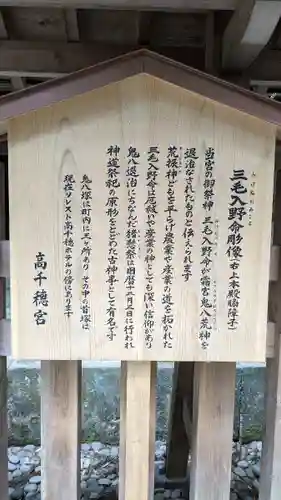 三毛入野命彫像(右上本殿脇障子)
みけぬのみこと
当宮の御祭神 三毛入野命が霜宮鬼八荒神を
退治なされたものと伝えられます
荒振神どもを平らげ農業や産業の道を拓かれた
三毛入野命は厄祓いや産業の神としても深い信仰があり
鬼八退治にちなんだ猪懸祭は旧暦十二月三日に行われ
神道祭祀の原形をとどめた古神事として有名です
鬼八塚は町内に三ヶ所あり その中の首塚は
現在ソレスト高千穂ホテルの傍にあります
高千穂宮